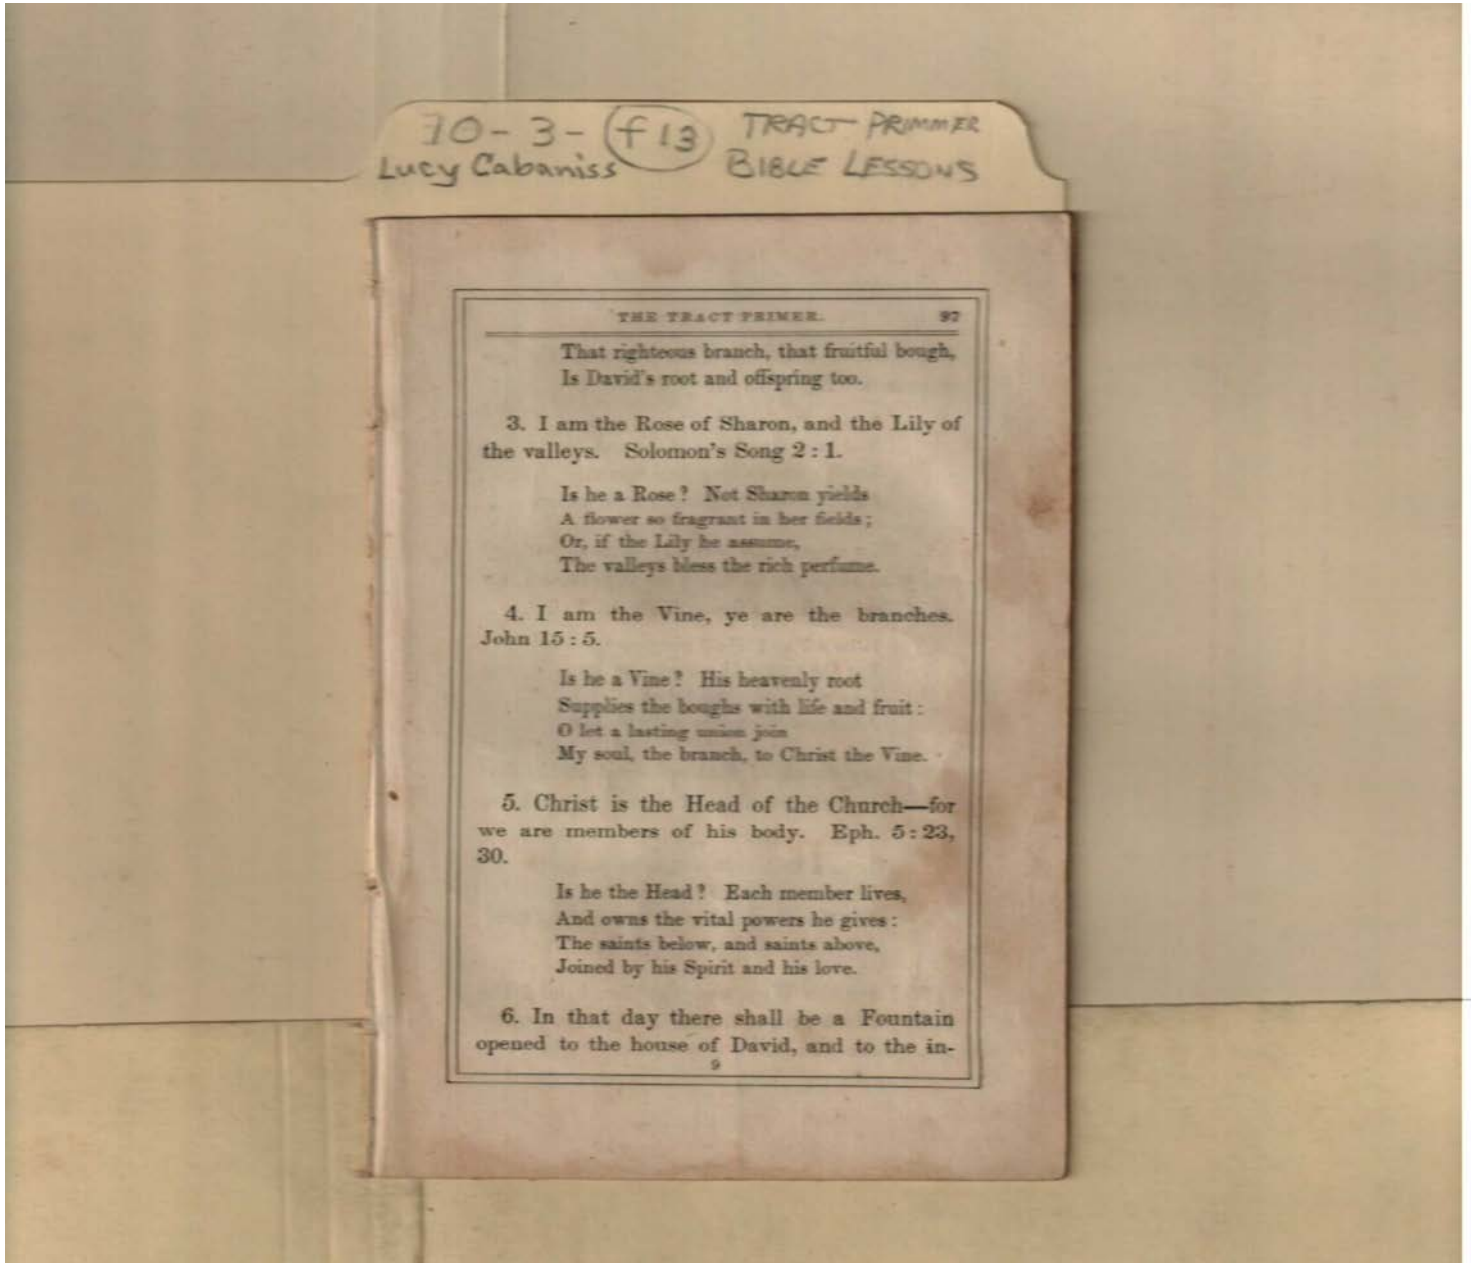 10-3-f13 TRACT PRIMMER
Lucy Cabaniss BIBLE LESSONS
THE TRACT PRIMER. 97
That righteous branch, that fruitful bough,
Is David's root and offspring too.
3. I am the Rose of Sharon, and the Lily of
the valleys. Solomon's Song 2 : 1.
Is he a Rose? Not Sharon yields
A flower so fragrant in her fields;
Or, if the Lily he assume,
The valleys bless the rich perfume.
4. I am the Vine, ye are the branches.
John 15 : 5.
Is he a Vine? His heavenly root
Supplies the boughs with life and fruit :
O let a lasting union join
My soul, the branch, to Christ the Vine.
5. Christ is the Head of the Church—for
we are members of his body. Eph. 5 : 23,
30.
Is he the Head? Each member lives,
And owns the vital powers he gives :
The saints below, and saints above,
Joined by his Spirit and his love.
6. In that day there shall be a Fountain
opened to the house of David, and to the in-
9